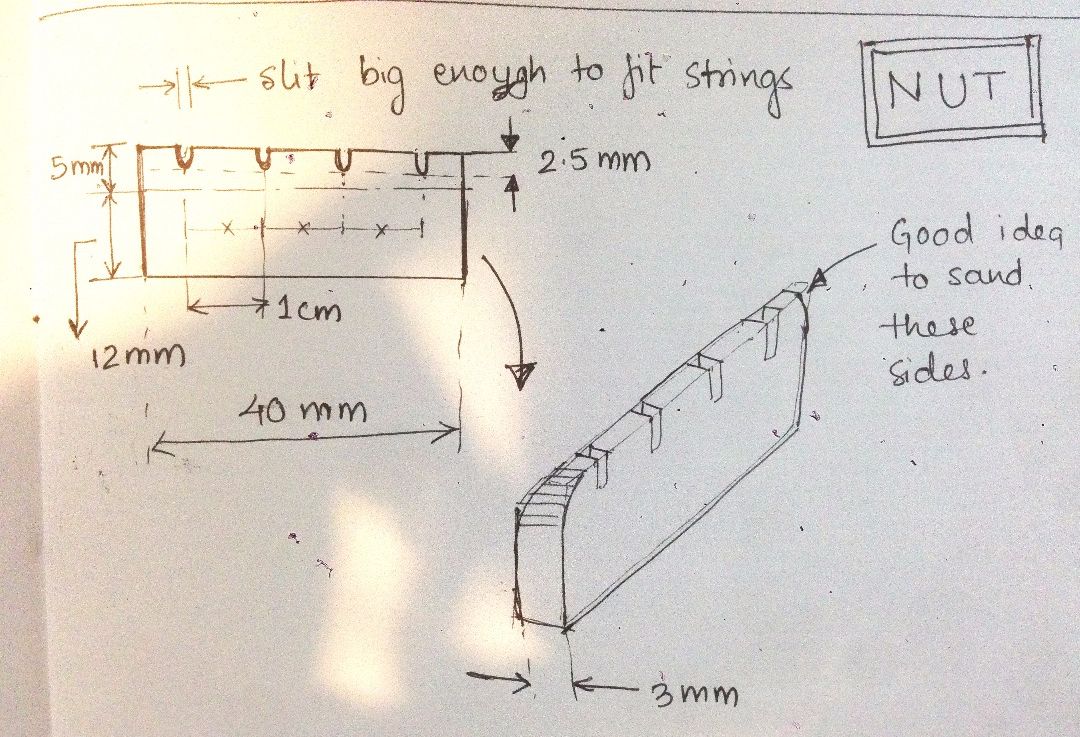 slit big enough to fit strings
NUT
5mm
2.5mm
x x x
Good idea
to sand.
these
sides.
1cm
12mm
40 mm
3mm